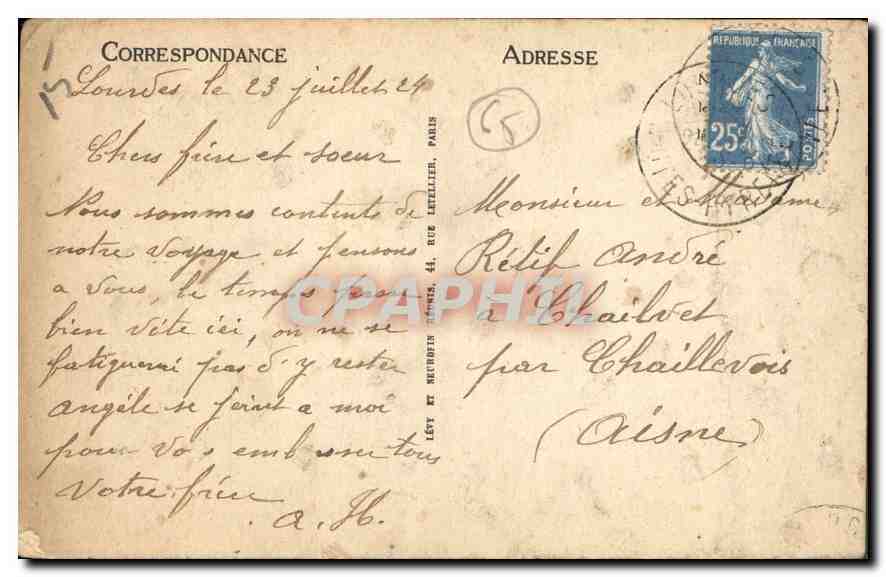 CORRESPONDANCE
Lourdes le 23 juillet 24
Chers frère et soeur
Nous sommes contents de
notre voyage et pensons
a vous, le temps passe
bien vite ici, on ne se
fatiguerai pas d'y rester
angèle se joint a moi
pour vous embrasser tous
Votre frère
a. H.
LÉVY ET NEURDEIN RÉUNIS, 44, RUE LETELLIER, PARIS
ADRESSE
65
REPUBLIQUE FRANÇAISE
25c
POSTES
Monsieur et Madame
Rétif André
à Chailvet
par Chaillevois
(Aisne)
CPAPHIL